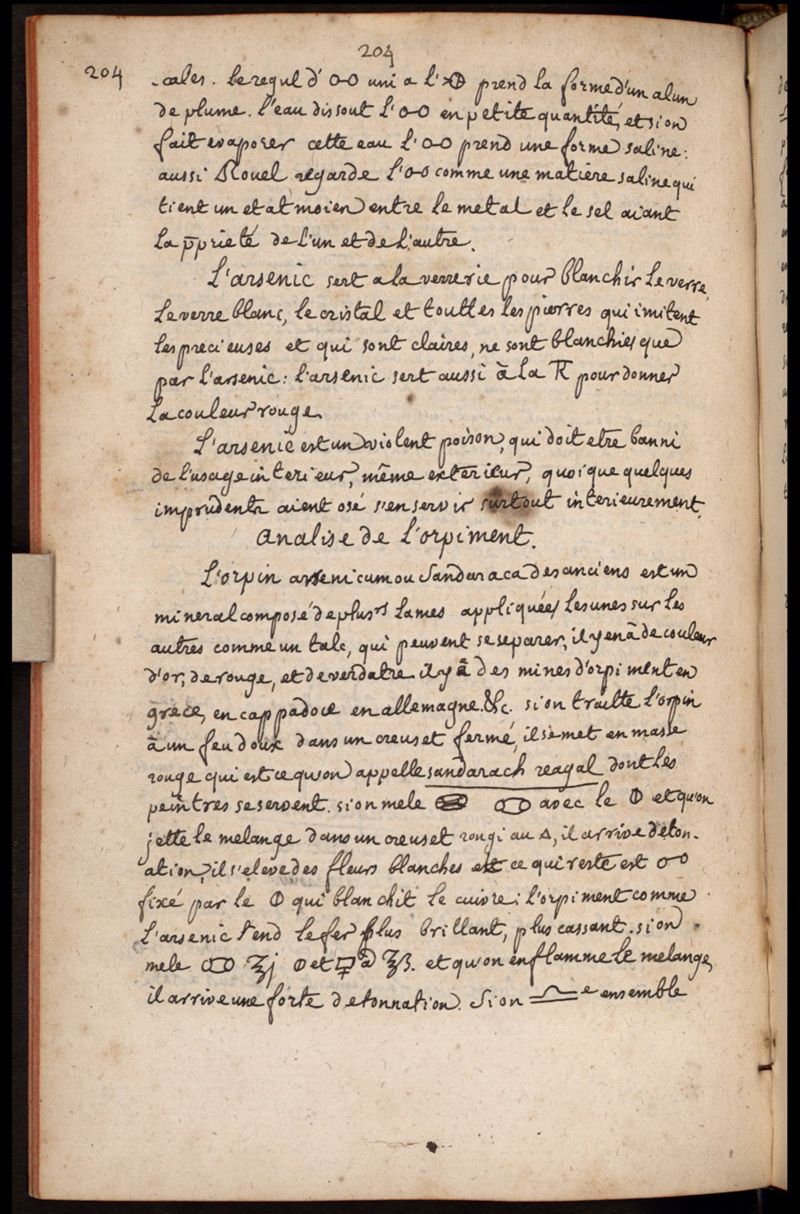 204
204
-cales. le regul d' o-o uni a l' prend la forme d'un alun
de plume. l'eau dissout l'o-o en petite quantité, et si on
fait evaporer cette eau l'o-o prend une forme saline:
aussi Rouel regarde l'o-o comme une matiere saline qui
tient un etat moien entre le metal et le sel aiant
la p̄prieté de l'un et de l'autre.
L'arsenic sert a la verrerie pour blanchir le verre,
le verre blanc, le cristal et touttes les pierres qui imitent
les precieuses et qui sont claires, ne sont blanchies que
par l'arsenic: l'arsenic sert aussi à la pour donner
la couleur rouge.
L'arsenic est un violent poison, qui doit etre banni
de l'usage interieur, même exterieur, quoique quelques
imprudents aient osé s'en servir surtout interieurement.
Analise de L'orpiment.
L'orpin arsenicum ou Sandaraca des anciens est un
mineral composé de plusrs lames appliquées les unes sur les
autres comme un talc, qui peuvent se separer, il y en à de couleur
d'or, de rouge, et de verdatre. il y à des mines d'orpiment en
grece, en cappadoce en allemagne. &c. si on traitte l'orpin
à un feu doux dans un creuset fermé, il se met en masse
rouge qui est ce qu'on appelle sandarach reagal dont les
peintres se servent. si on mele avec le et qu'on
jette le melange dans un creuset rougi au △, il arrive deton-
ation, il s'eleve des fleurs blanches et ce qui reste est o-o
fixé par le qui blanchit le cuivre; l'orpiment comme
l'arsenic rend le fer plus brillant, plus cassant. si on
mele ʒj et ʒß. et qu'on enflamme le melange,
il arrive une forte detonnation. Si on ensemble